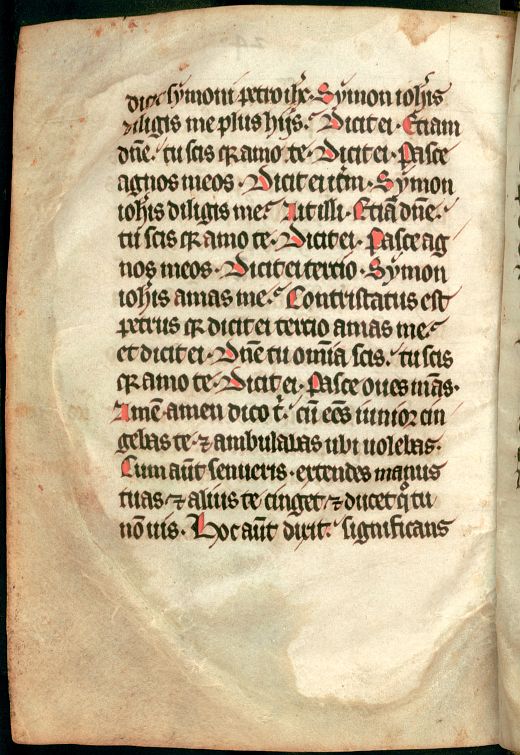 dic̄ symoni petro ih̄c. Symon ioh̄is
diligis me plus hijs. Dicit ei. Etiam
dn̄e. tu scis qꝛ amo te. Dicit ei. Pasce
agnos meos. Dicit ei itm̄. Symon
ioh̄is diligis me. Ait illi. Etiā dn̄e.
tu scis qꝛ amo te. Dicit ei. Pasce ag
nos meos. Dicit ei tercio. Symon
ioh̄is amas me. Contristatus est
petrus qꝛ dicit ei tercio amas me.
et dicit ei. Dn̄e tu om̄ia scis. tu scis
qꝛ amo te. Dicit ei. Pasce oues mās.
Amē amen dico t̄. cū eēs iunior cin
gebas te. ⁊ ambulabas ubi uolebas.
Cum aūt senueris. extendes manus
tuas. ⁊ alius te cinget. ⁊ ducet qͦ tu
nō uis. Hoc aūt dixit. significans